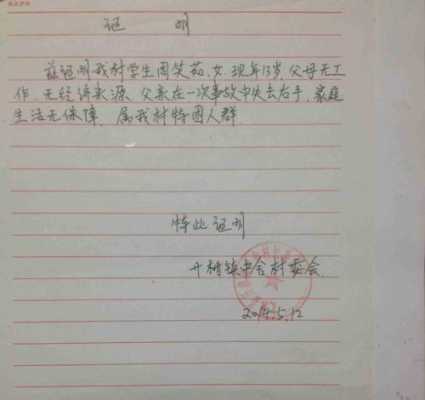 证 明
兹证明我村学生周笑茹、女、现年13岁，父母无工
作，无经济来源、父亲在一次事故中失去右手，家庭
生活无保障、属我村特困人群
特此证明
镇中舍村委会
5.12